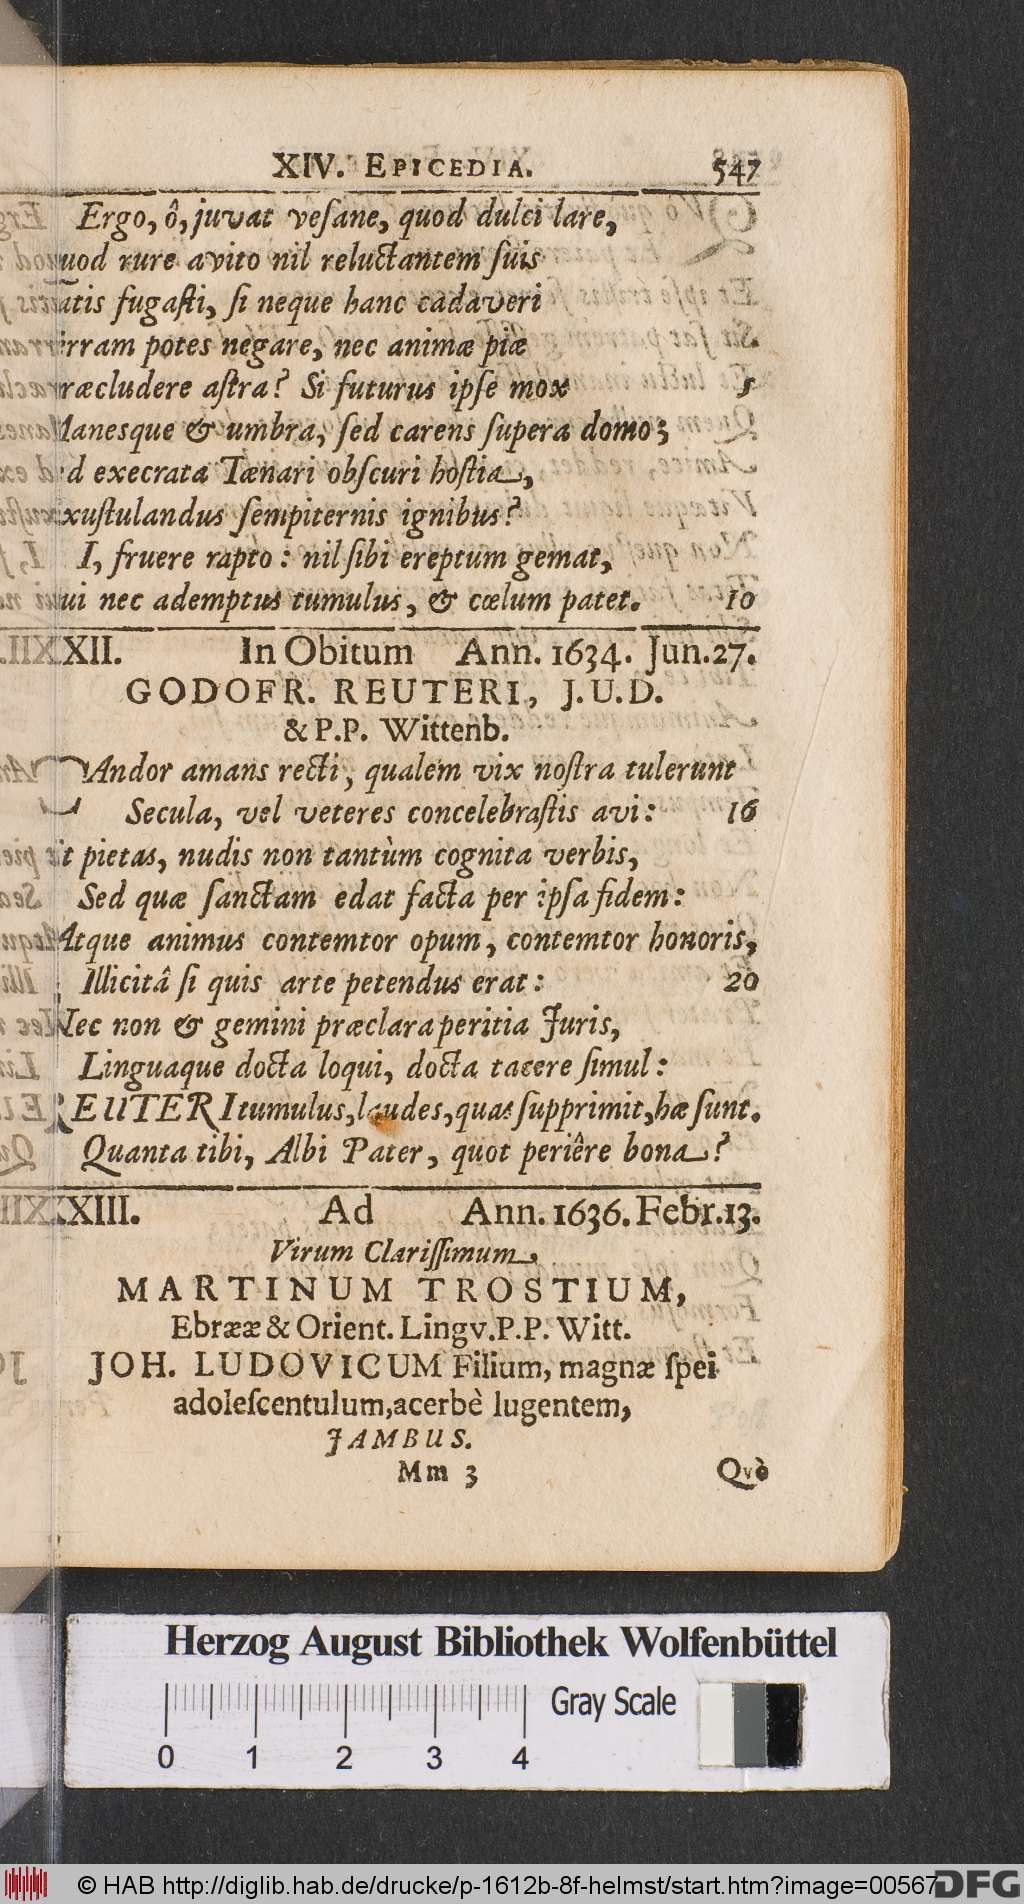 XIV. EPICEDIA. 547
Ergo, ô, juvat veſane, quod dulci lare,
quod rure avito nil reluctantem ſuis
fugaſti, ſi neque hanc cadaveri
potes negare, nec animæ piæ
Præcludere aſtra? Si futurus ipſe mox 5
Manesque & umbra, ſed carens ſupera domo;
execrata Tænari obſcuri hoſtia,
Exuſtulandus ſempiternis ignibus?
I, fruere rapto: nil ſibi ereptum gemat,
Cui nec ademptus tumulus, & cœlum patet. 10
XXII. In Obitum Ann. 1634. Jun. 27.
GODOFR. REUTERI, J.U.D.
& P.P. Wittenb.
CAndor amans recti, qualem vix noſtra tulerunt
Secula, vel veteres concelebraſtis avi: 16
Et pietas, nudis non tantùm cognita verbis,
Sed quæ ſanctam edat facta per ipſa fidem:
Atque animus contemtor opum, contemtor honoris,
Illicitâ ſi quis arte petendus erat: 20
Nec non & gemini præclara peritia Juris,
Linguaque docta loqui, docta tacere ſimul:
REUTERI tumulus, laudes, quas ſupprimit, hæ ſunt.
Quanta tibi, Albi Pater, quot periêre bona?
XXIII. Ad Ann. 1636. Febr. 13.
Virum Clariſſimum,
MARTINUM TROSTIUM,
Ebrææ & Orient. Lingv. P.P. Witt.
JOH. LUDOVICUM Filium, magnæ ſpei
adoleſcentulum, acerbè lugentem,
JAMBUS.
Mm 3 Qvò
Herzog August Bibliothek Wolfenbüttel
Gray Scale
0 1 2 3 4
© HAB http://diglib.hab.de/drucke/p-1612b-8f-helmst/start.htm?image=00567
DFG